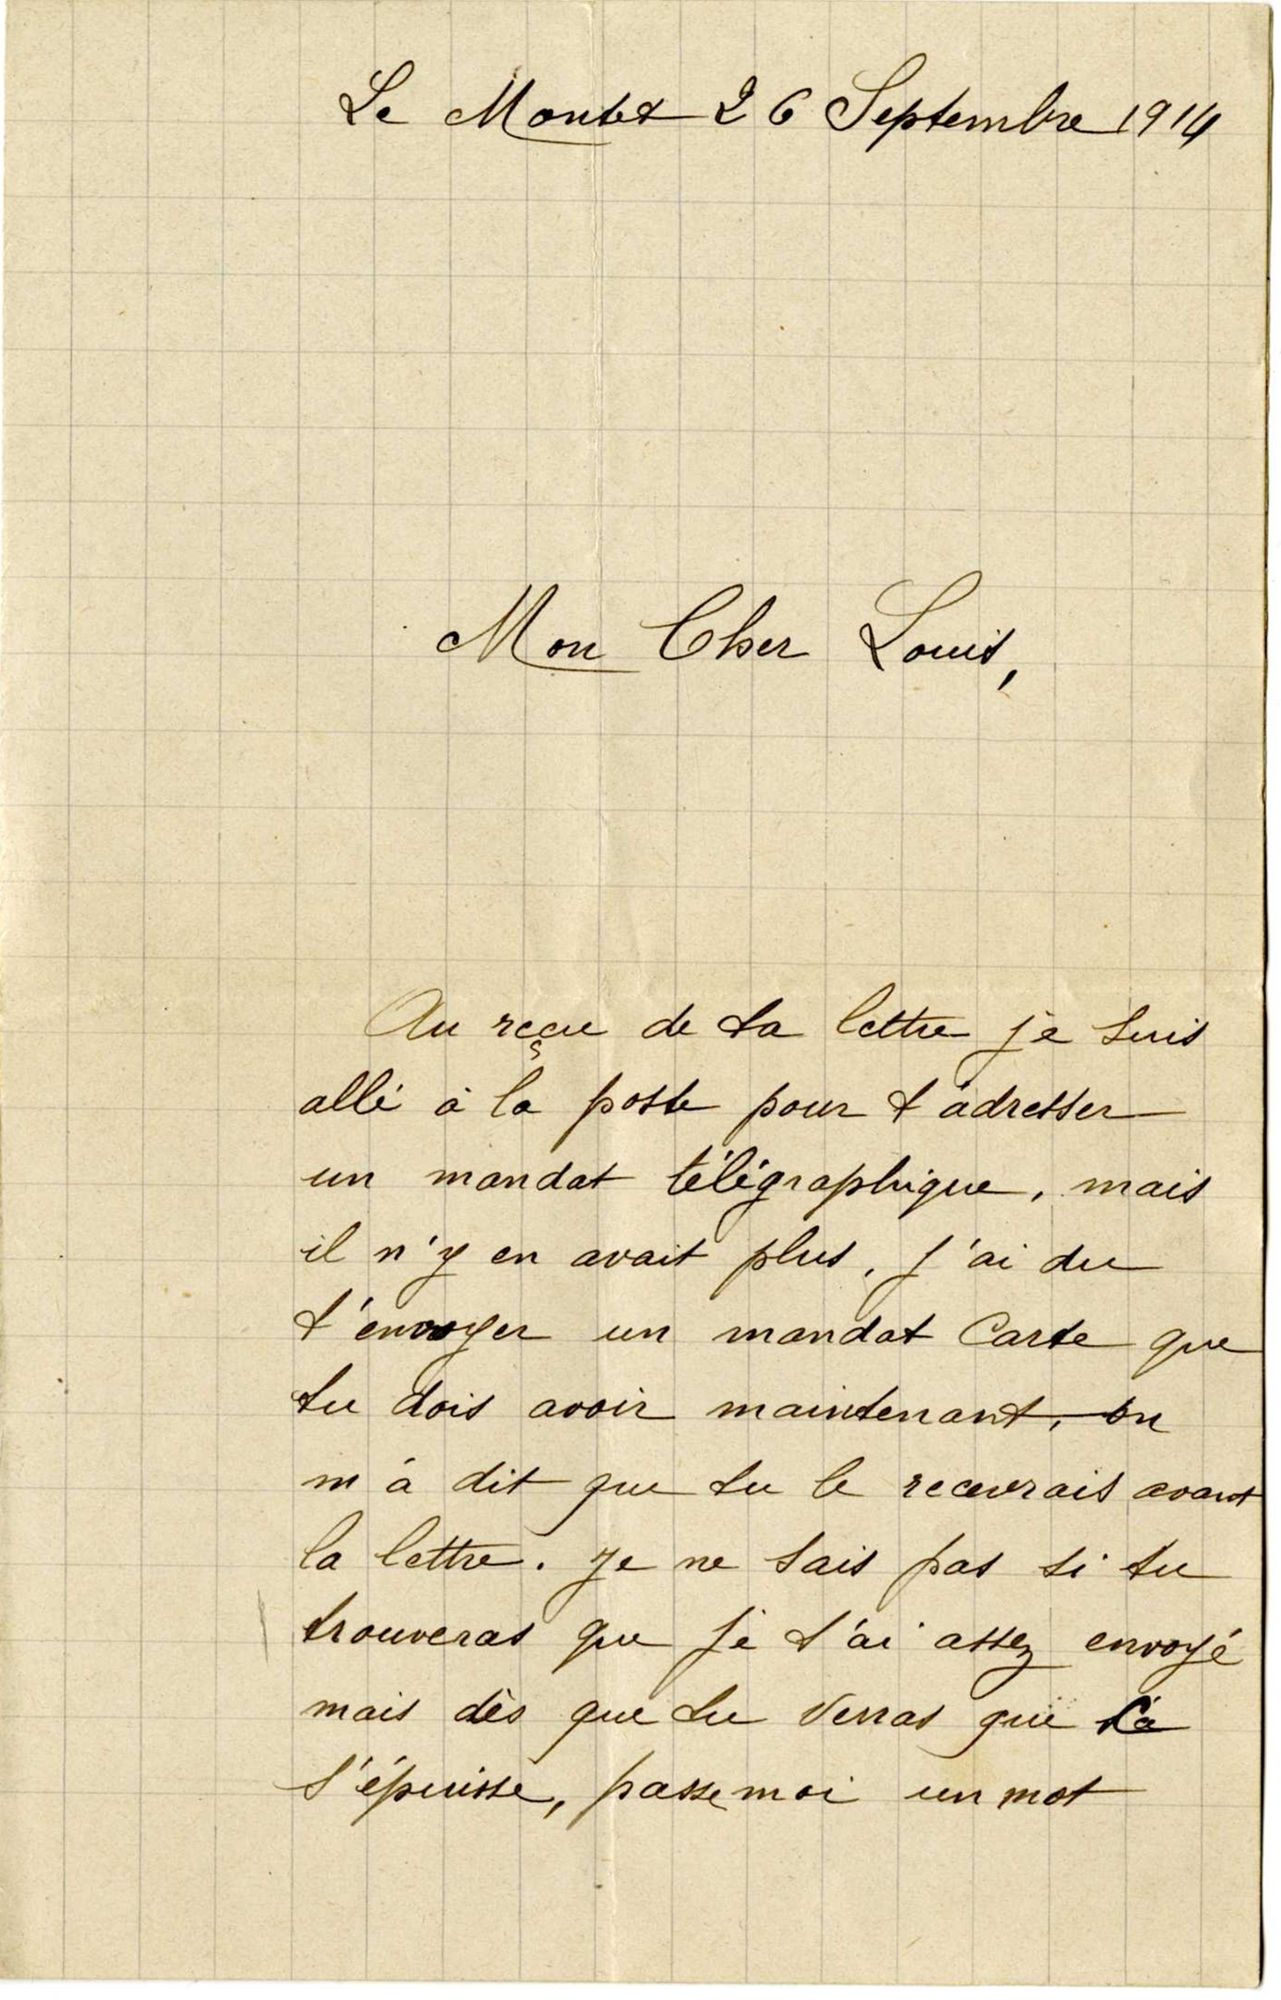 Le Montet 26 Septembre 1914
Mon Cher Louis,
Au reçue de ta lettre je suis
allé à la poste pour t'adresser
un mandat télégraphique, mais
il n'y en avait plus, j'ai du
t'envoyer un mandat Carte que
tu dois avoir maintenant, on
m'a dit que tu le recevrais avant
la lettre. Je ne sais pas si tu
trouveras que je t'ai assez envoyé
mais dès que tu verras que ça
s'épuisse, passe moi un mot